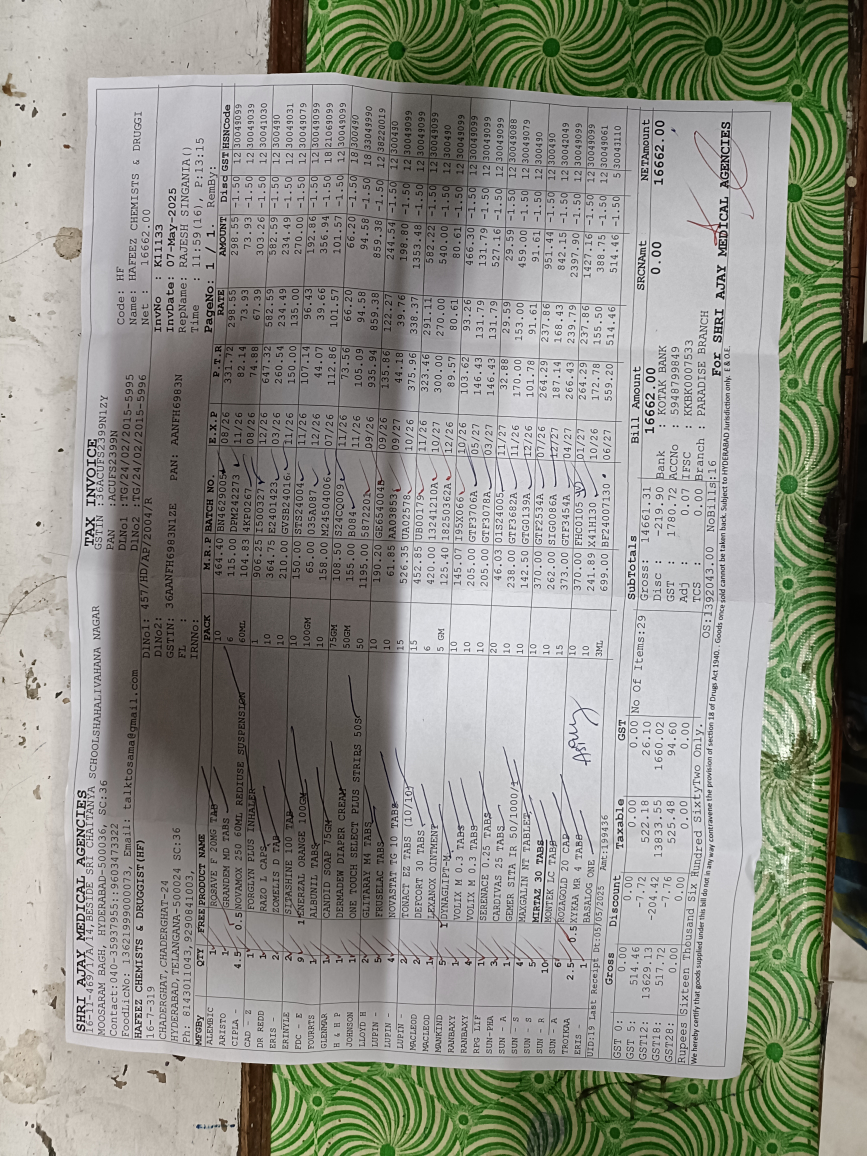 TAX INVOICE
SHRI AJAY MEDICAL AGENCIES
16-11-469/1/A/14,BESIDE SRI CHAITANYA SCHOOLSHAHALIVAHANA NAGAR
MOOSARAM BAGH, HYDERABAD-500036, SC:36
Contact:040-35937955::9603473322
FoodLicNo: 13621999000073, Email: talktosama@gmail.com
GSTIN :36ACUFS2399N1ZY
PAN :ACUFS2399N
DlNo1 :TG/24/02/2015-5995
DlNo2 :TG/24/02/2015-5996
Code: HF
Name: HAFEEZ CHEMISTS & DRUGGI
Net : 16662.00
HAFEEZ CHEMISTS & DRUGGIST(HF)
16-7-319
CHADERGHAT, CHADERGHAT-24
HYDERABAD,TELANGANA-500024 SC:36
Ph: 8143011043,9290841003,
DlNo1: 457/HD/AP/2004/R
DlNo2:
GSTIN: 36AANFH6983N1ZE PAN: AANFH6983N
FL :
IRNNo:
InvNo : K11133
InvDate: 07-May-2025
RepName: RAJESH SINGANIA()
Time : 11:59(16), P:13:15
PageNo: 1 / 1. RemBy:
MFGBy QTY FREE PRODUCT NAME PACK M.R.P BATCH NO. E.X.P P.T.R RATE AMOUNT Disc GST HSNCode
ALEMBIC 1 ROSAVE F 20MG TAB 10 464.40 BN4629005 08/26 331.72 298.55 298.55 -1.50 12 30049099
ARISTO 1 GRANDEM MD TABS 6 115.00 DPM242273 11/26 82.14 73.93 73.93 -1.50 12 30049039
CIPLA - 4.5 0.5 NOVAMOX 250 60ML REDIUSE SUSPENSION 60ML 104.83 4KP0267 08/26 74.88 67.39 303.26 -1.50 12 30041030
CAD - Z 1 FORGLYN PLUS INHALER 1 906.25 I500327 12/26 647.32 582.59 582.59 -1.50 12 300490
DR REDD 1 RAZO L CAPS 10 364.75 E2401423 03/26 260.54 234.49 234.49 -1.50 12 30049031
ERIS - 2 ZOMELIS D TAB 10 210.00 GVSB24016 11/26 150.00 135.00 270.00 -1.50 12 30049079
ERINYLE 2 SITASHINE 100 TAB 10 150.00 STS24004 11/26 107.14 96.43 192.86 -1.50 12 30049099
FDC - E 9 1 ENERZAL ORANGE 100GM 100GM 65.00 035A087 12/26 44.07 39.66 356.94 -1.50 18 21069099
FOURRTS 1 ALBUNIL TABS 10 158.00 M24504006 07/26 112.86 101.57 101.57 -1.50 12 30049099
GLENMAR 1 CANDID SOAP 75GM 75GM 108.50 SZ24CQ009 11/26 73.56 66.20 66.20 -1.50 18 300490
H & H D 1 DERMADEW DIAPER CREAM 50GM 155.00 B084 11/26 105.09 94.58 94.58 -1.50 18 33049990
JOHNSON 1 ONE TOUCH SELECT PLUS STRIPS 50S 50 1195.00 5872201 09/26 935.94 859.38 859.38 -1.50 12 38220019
LLOYD H 2 GLITARAY M4 TABS 10 190.20 GE654004B 09/26 135.86 122.27 244.54 -1.50 12 300490
LUPIN - 5 PRUSELAC TABS 10 61.85 AA03853 09/27 44.18 39.76 198.80 -1.50 12 30049099
LUPIN - 4 NOVASTAT TG 10 TABS 15 526.35 UA02578 10/26 375.96 338.37 1353.48 -1.50 12 30049099
LUPIN - 2 TONACT EZ TABS (10/10) 15 452.85 UB00179 11/26 323.46 291.11 582.22 -1.50 12 30049099
MACLEOD 2 DEFCORT 3 TABS 6 420.00 13241210A 10/27 300.00 270.00 540.00 -1.50 12 300490
MACLEOD 1 LEXANOX OINTMENT 5 GM 125.40 18250362A 12/26 89.57 80.61 80.61 -1.50 12 30049099
MANKIND 5 DYNAGLIPT-M 10 145.07 I95X066 10/26 103.62 93.26 466.30 -1.50 12 30049099
RANBAXY 1 VOLIX M 0.3 TABS 10 205.00 GTF3706A 05/27 146.43 131.79 131.79 -1.50 12 30049099
RANBAXY 4 VOLIX M 0.3 TABS 10 205.00 GTF3078A 03/27 146.43 131.79 527.16 -1.50 12 30049099
RPG LIF 1 SERENACE 0.25 TABS 20 46.03 O1S24005 11/27 32.88 29.59 29.59 -1.50 12 30049088
SUN-PHA 3 CARDIVAS 25 TABS 10 238.00 GTF3682A 11/26 170.00 153.00 459.00 -1.50 12 30049079
SUN - A 1 GEMER SITA IR 50/1000/1 10 142.50 GTG0139A 12/26 101.78 91.61 91.61 -1.50 12 300490
SUN - S 4 MAXGALIN NT TABLET 10 370.00 GTF2534A 07/26 264.29 237.86 951.44 -1.50 12 300490
SUN - S 5 MIRTAZ 30 TABS 10 262.00 BIG0086A 12/27 187.14 168.43 842.15 -1.50 12 30042049
SUN - R 10 MONTEK LC TABS 15 373.00 GTF3454A 04/27 266.43 239.79 2397.90 -1.50 12 30049099
SUN - A 6 ROZAGOLD 20 CAP 10 370.00 EHC0105 01/27 264.29 237.86 1427.16 -1.50 12 30049099
TROIKAA 2.5 0.5 XYKAA MR 4 TABS 10 241.89 X41H130 10/26 172.78 155.50 388.75 -1.50 12 30049061
ERIS - 1 BASALOG ONE 3ML 699.00 BF24007130 06/27 559.20 514.46 514.46 -1.50 5 30043110
UID:19 Last Receipt Dt:05/05/2025 Amt:199436
Gross Discount Taxable GST
GST 0: 0.00 0.00 0.00 0.00
GST 5: 514.46 -7.72 522.18 26.10
GST12: 13629.13 -204.42 13833.55 1660.02
GST18: 517.72 -7.76 525.48 94.60
GST28: 0.00 0.00 0.00 0.00
No Of Items:29
SubTotals
Gross: 14661.31
Disc : -219.90
GST : 1780.72
Adj : 0.00
TCS : 0.00
Bill Amount
16662.00
SRCNAmt
0.00
NETAmount
16662.00
Bank : KOTAK BANK
ACCNo : 5948799849
IFSC : KKBK0007533
Branch : PARADISE BRANCH
Rupees Sixteen Thousand Six Hundred SixtyTwo Only.
OS:1392043.00 NoBills:16
For SHRI AJAY MEDICAL AGENCIES
We hereby certify that goods supplied under this bill do not in any way contravene the provision of section 18 of Drugs Act 1940. . Goods once sold cannot be taken back. Subject to HYDERABAD Jurisdiction only. E & O.E.